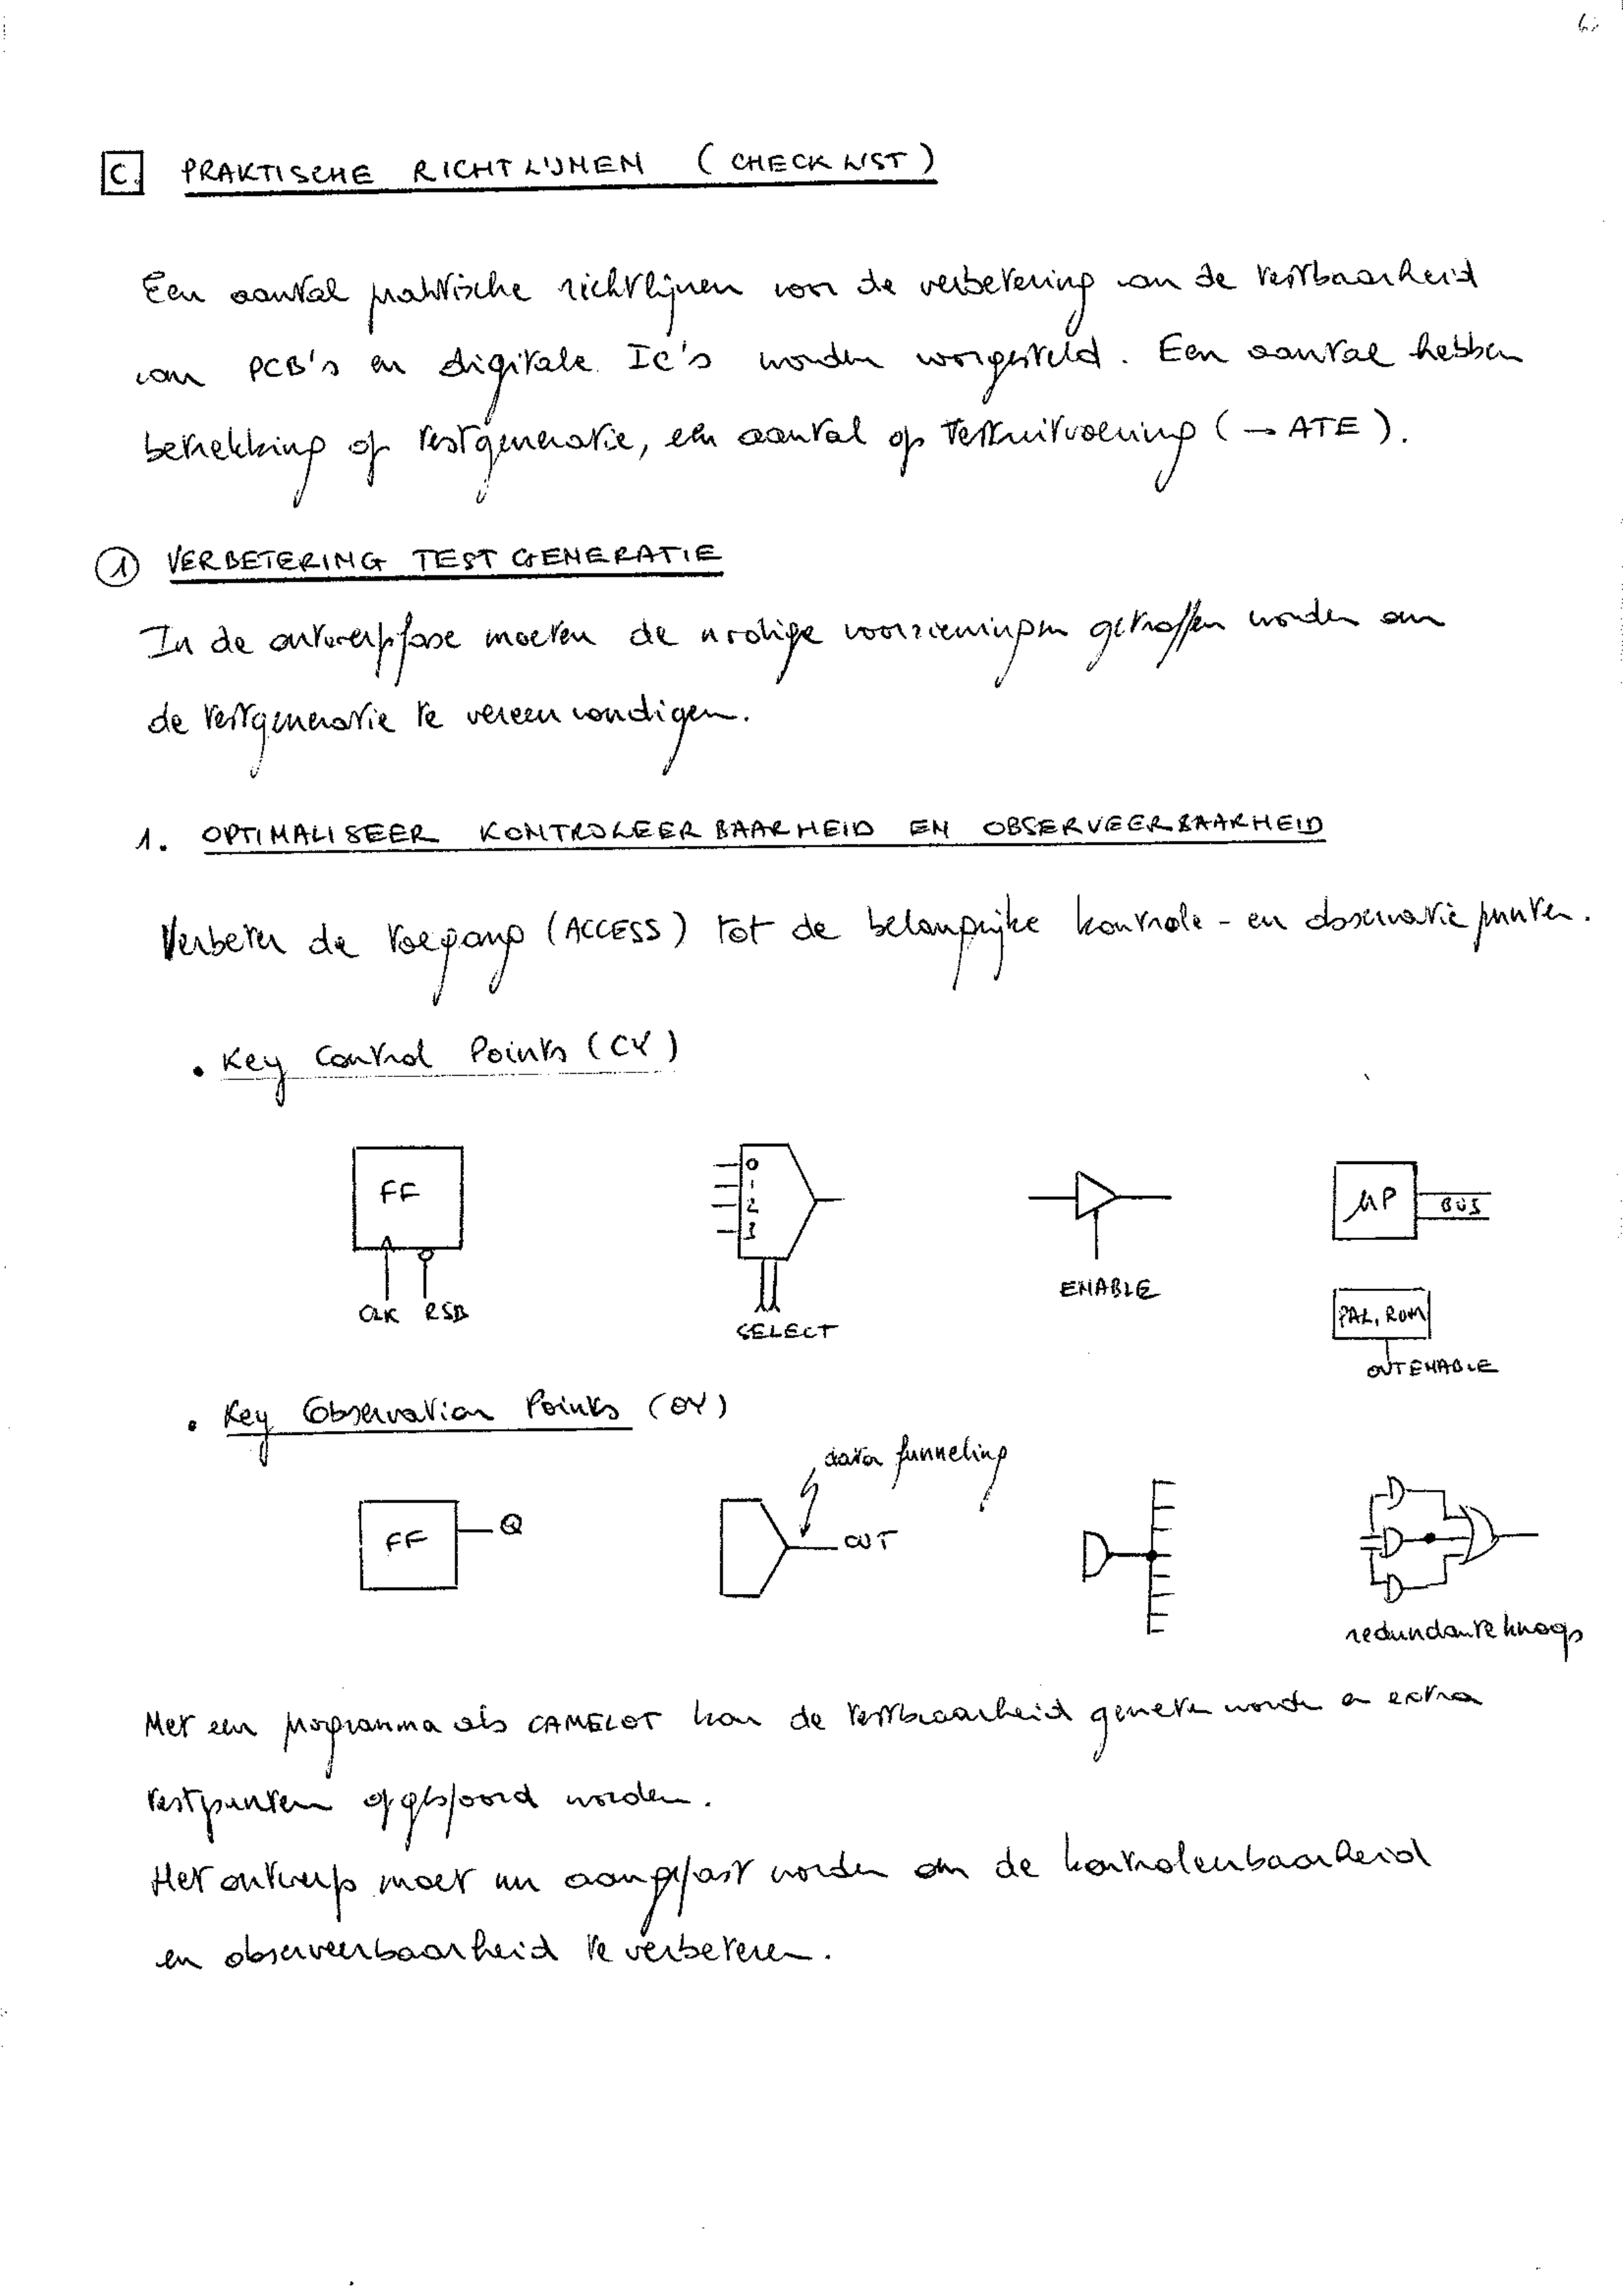 C. PRAKTISCHE RICHTLIJNEN (CHECKLIST)
Een aantal praktische richtlijnen voor de verbetering van de testbaarheid
van PCB's en digitale IC's worden voorgesteld. Een aantal hebben
betrekking op testgeneratie, een aantal op testuitvoering (→ ATE).
1 VERBETERING TESTGENERATIE
In de ontwerpfase moeten de nodige voorzieningen getroffen worden om
de testgeneratie te vereenvoudigen.
1. OPTIMALISEER KONTROLEERBAARHEID EN OBSERVEERBAARHEID
Verbeter de toegang (ACCESS) tot de belangrijke kontrole- en observatiepunten.
• Key Control Points (CY)
FF
CLK RSB
0
1
2
3
SELECT
ENABLE
µP BUS
PAL, ROM
OUTENABLE
• Key Observation Points (OY)
data funneling
FF Q
OUT
redundante knoop
Met een programma als CAMELOT kan de testbaarheid gemeten worden en extra
testpunten opgespoord worden.
Het ontwerp moet nu aangepast worden om de kontroleerbaarheid
en observeerbaarheid te verbeteren.